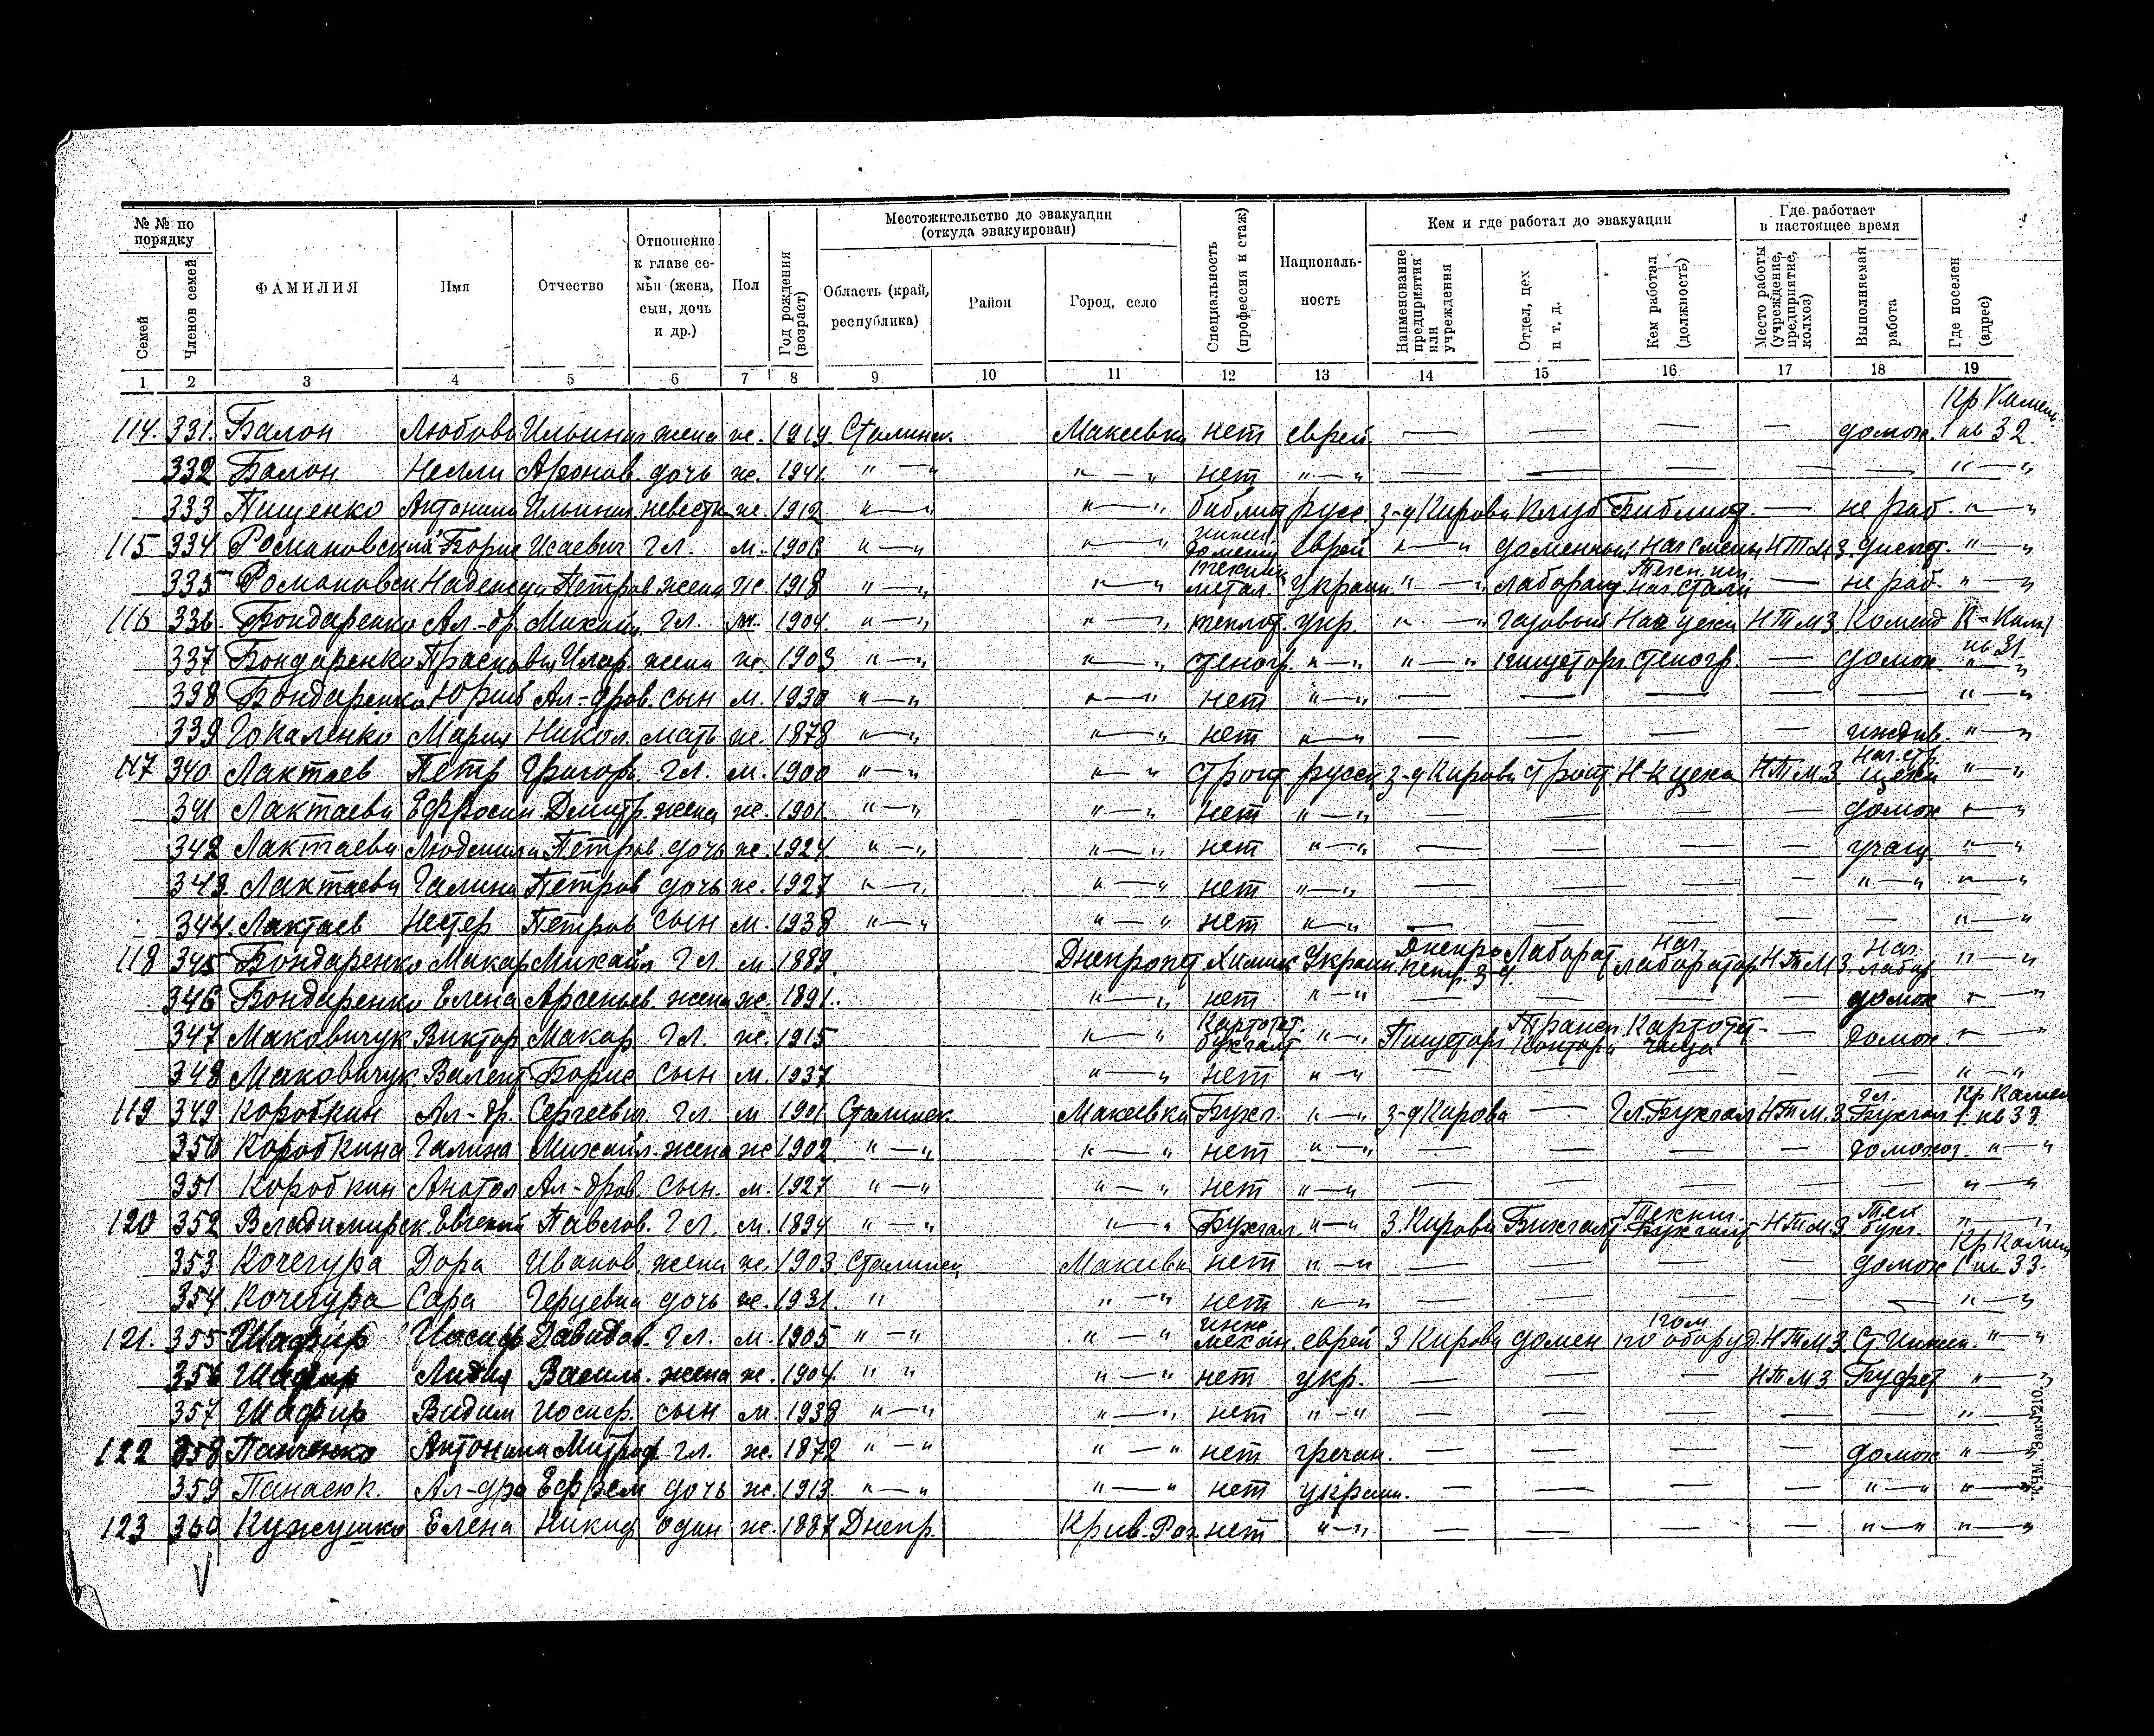 № № по порядку
Местожительство до эвакуации (откуда эвакуирован)
Кем и где работал до эвакуации
Где работает в настоящее время
Семей
Членов семей
ФАМИЛИЯ
Имя
Отчество
Отношение к главе семьи (жена, сын, дочь и др.)
Пол
Год рождения (возраст)
Область (край, республика)
Район
Город, село
Специальность (профессия и стаж)
Национальность
Наименование предприятия или учреждения
Отдел, цех и т. д.
Кем работал (должность)
Место работы (учреждение, предприятие, колхоз)
Выполняемая работа
Где поселен (адрес)
1 2 3 4 5 6 7 8 9 10 11 12 13 14 15 16 17 18 19
114. 331. Балон Любовь Ильинич жена ж. 1919 Сталинск. Макеевка нет еврей — — — — домох. Кр Камен. 1 кв 32.
332 Балон Нелли Аронов. дочь ж. 1941. "—" "—" нет "—" — — — — — "—"
333 Пищенко Антонина Ильинич. невестка ж. 1912 "—" "—" библиот русс. з-д Кирова Клуб Библиот. — не раб. "—"
115 334. Романовский Борис Исаевич Гл. м. 1906 "—" "—" инжен. доменщ еврей "—" доменный нач смены НТМЗ. диспет. "—"
335 Романовск Надежда Петров. жена ж. 1918 "—" "—" техник метал. украин. "—" лаборат. — не раб. "—"
116 336. Бондаренко Ал-др. Михайл. Гл. м. 1904. "—" "—" теплот. укр. "—" Газовый Нач цеха НТМЗ. К-Камн кв 31
337 Бондаренко Прасковья Илар. жена ж. 1903 "—" "—" стеногр. "—" "—" пищеторг стеногр. — домох. "—"
338 Бондаренко Юрий Ал-дров. сын м. 1930 "—" "—" нет "—" — — — — — "—"
339 Мария Никол. мать ж. 1878 "—" "—" нет "—" — — — — иждив. "—"
117 340 Лактаев Петр Григор. Гл. м. 1900 "—" "—" строит русск з-д Кирова строит. Н-к цеха НТМЗ нач. стр. цеха "—"
341 Лактаева Ефросин. Дмитр. жена ж. 1901. "—" "—" нет "—" — — — — домох "—"
342 Лактаева Людмила Петров. дочь ж. 1924. "—" "—" нет "—" — — — — учащ. "—"
343. Лактаева Галина Петров дочь ж. 1927 "—" "—" нет "—" — — — — "—" "—"
344. Лактаев Петров сын м. 1938 "—" "—" нет "—" — — — — — "—"
118 345 Бондаренко Макар Михайл Гл. м 1889. Днепропет Химик Украин. Днепро петр. з-д. Лаборат нач. лаборатор НТМЗ. Нач. лабор "—"
346 Бондаренко Елена Арсеньев. жена ж. 1891. "—" нет "—" — — — — домох "—"
347 Маковичук Виктор. Макар. Гл. ж. 1915 "—" Картотет. бухгалт "—" Пищеторг Трансп. контора Картотет-чица — домох. "—"
348 Маковичук Валент. Борис сын м. 1937. "—" нет "—" — — — — — "—"
119 349 Коробкин Ал-др. Сергеевич. Гл. м 1901 Сталинск. Макеевка Бухг. "—" з-д Кирова — Гл. Бухгал НТМЗ. гл. Бухгал Кр Камен 1. кв 33.
350 Коробкина Галина Михайл. жена ж 1902 "—" "—" нет "—" — — — — домохоз. "—"
351 Коробкин Анатол Ал-дров. сын. м. 1927 "—" "—" нет "—" — — — — — "—"
120 352 Владимирск. Евгений Павлов. Гл. м. 1894 "—" "—" Бухгал. "—" З. Кирова Бухгалт. НТМЗ. бухг. "—"
353 Кочегура Дора Иванов. жена ж. 1903 Сталинск Макеевк нет "—" — — — — домох Кр Камен 1 кв. 33.
354. Кочегура Сара Герцевна дочь ж. 1931. " "—" нет "—" — — — — — "—"
121. 355 Шафир Иосиф Давидов. Гл. м. 1905 "—" "—" инж. механ. еврей З Кирова домен пом по оборуд. НТМЗ Ст. Инжен. "—"
356 Шафир Лидия Василь. жена ж. 1904. " " "—" нет укр. — — — НТМЗ Буфет "—"
357 Шафир Вадим Иосиф. сын м. 1938 "—" "—" нет "—" — — — — — "—"
122 358 Панченко Антонина Митроф гл. ж. 1872 "—" "—" нет гречан. — — — — домох "—"
359 Панасюк. Ал-дра Ефрем дочь ж. 1913. "—" "—" нет украин. — — — — "—" "—"
123 360 Кужушко Елена Никиф один ж. 1887 Днепр. Крив. Рог. нет "—" — — — — "—" "—"
КЧМ. Зак. 210.